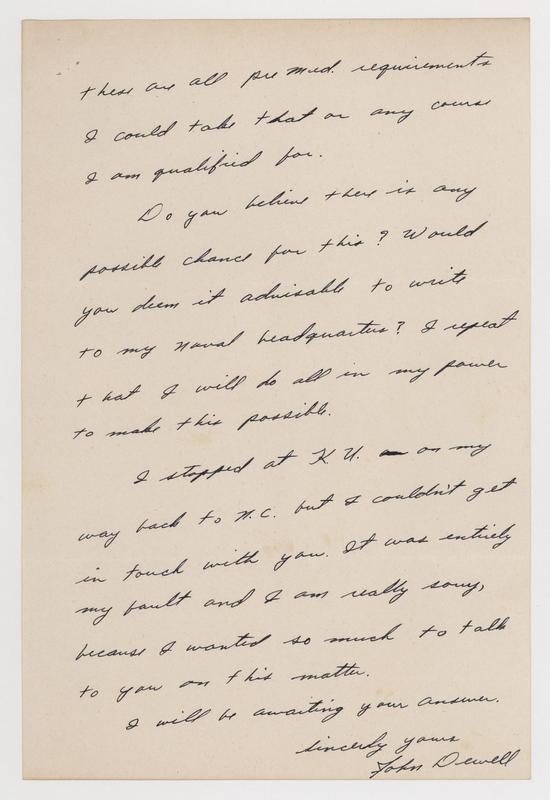 these are all pre med. requirements
I could take that or any course
I am qualified for.
Do you believe there is any
possible chance for this? Would
you deem it advisable to write
to my naval headquarters? I repeat
that I will do all in my power
to make this possible.
I stopped at K.U. on my
way back to N.C. but I couldn't get
in touch with you. It was entirely
my fault and I am really sorry,
because I wanted so much to talk
to you on this matter.
I will be awaiting your answer.
Sincerely yours
John Dewell